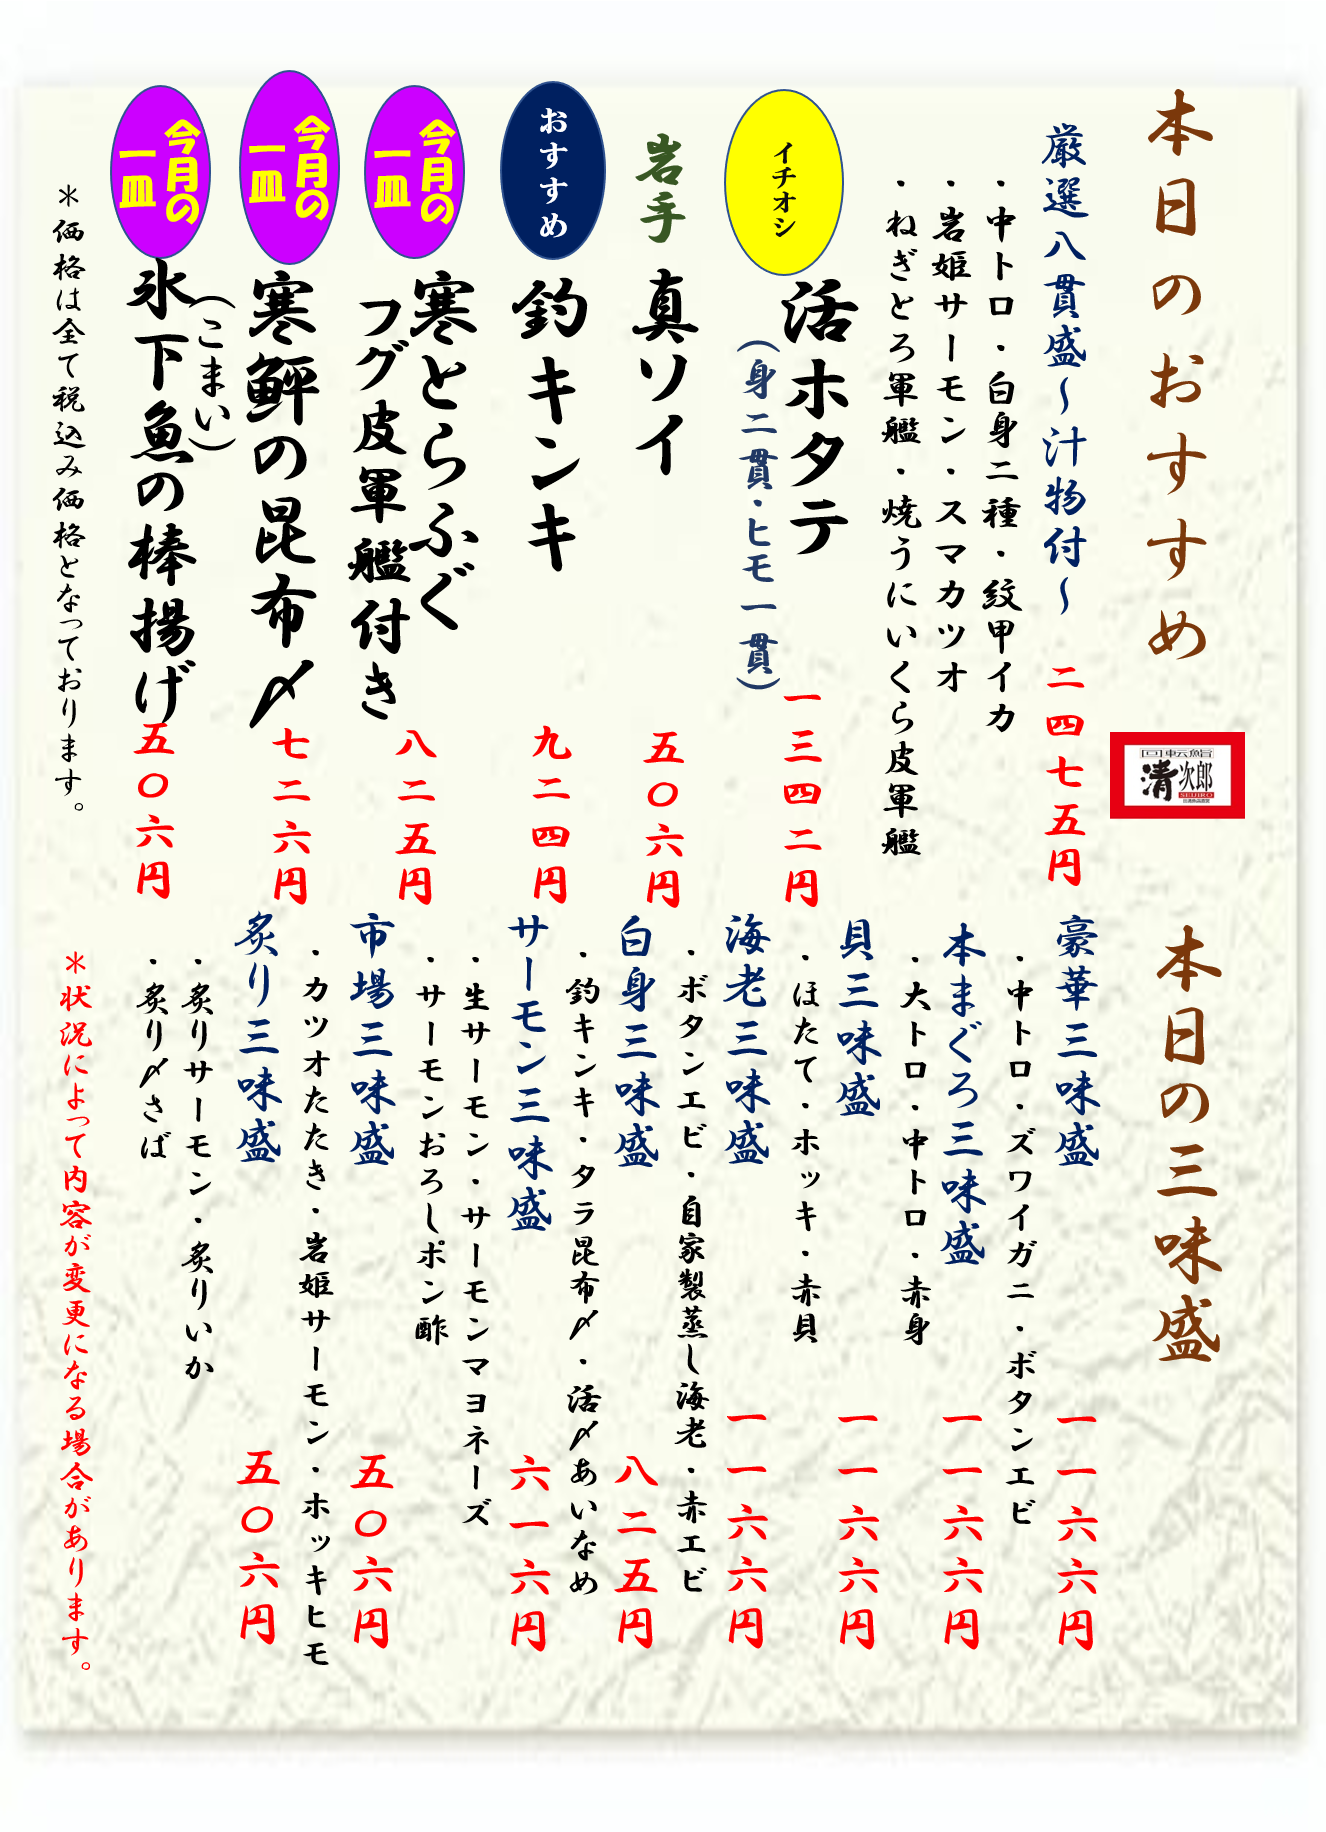 本日のおすすめ
厳選八貫盛～汁物付～ 二四七五円
・中トロ・白身二種・紋甲イカ
・岩姫サーモン・スマカツオ
・ねぎとろ軍艦・焼うにいくら皮軍艦
イチオシ
活ホタテ 一三四二円
(身二貫・ヒモ一貫)
岩手
真ソイ 五〇六円
おすすめ
釣キンキ 九二四円
今月の
一皿
寒とらふぐ
フグ皮軍艦付き
八二五円
今月の
一皿
寒鮃の昆布〆 七二六円
今月の
一皿
(こまい)
氷下魚の棒揚げ 五〇六円
＊価格は全て税込み価格となっております。
回転鮨
清次郎
SEIJIRO
本日の三味盛
豪華三味盛 一一六六円
・中トロ・ズワイガニ・ボタンエビ
本まぐろ三味盛 一一六六円
・大トロ・中トロ・赤身
貝三味盛 一一六六円
・ほたて・ホッキ・赤貝
海老三味盛 一一六六円
・ボタンエビ・自家製蒸し海老・赤エビ
白身三味盛 八二五円
・釣キンキ・タラ昆布〆・活〆あいなめ
サーモン三味盛 六一六円
・生サーモン・サーモンマヨネーズ
・サーモンおろしポン酢
市場三味盛 五〇六円
・カツオたたき・岩姫サーモン・ホッキヒモ
炙り三味盛 五〇六円
・炙りサーモン・炙りいか
・炙り〆さば
＊状況によって内容が変更になる場合があります。